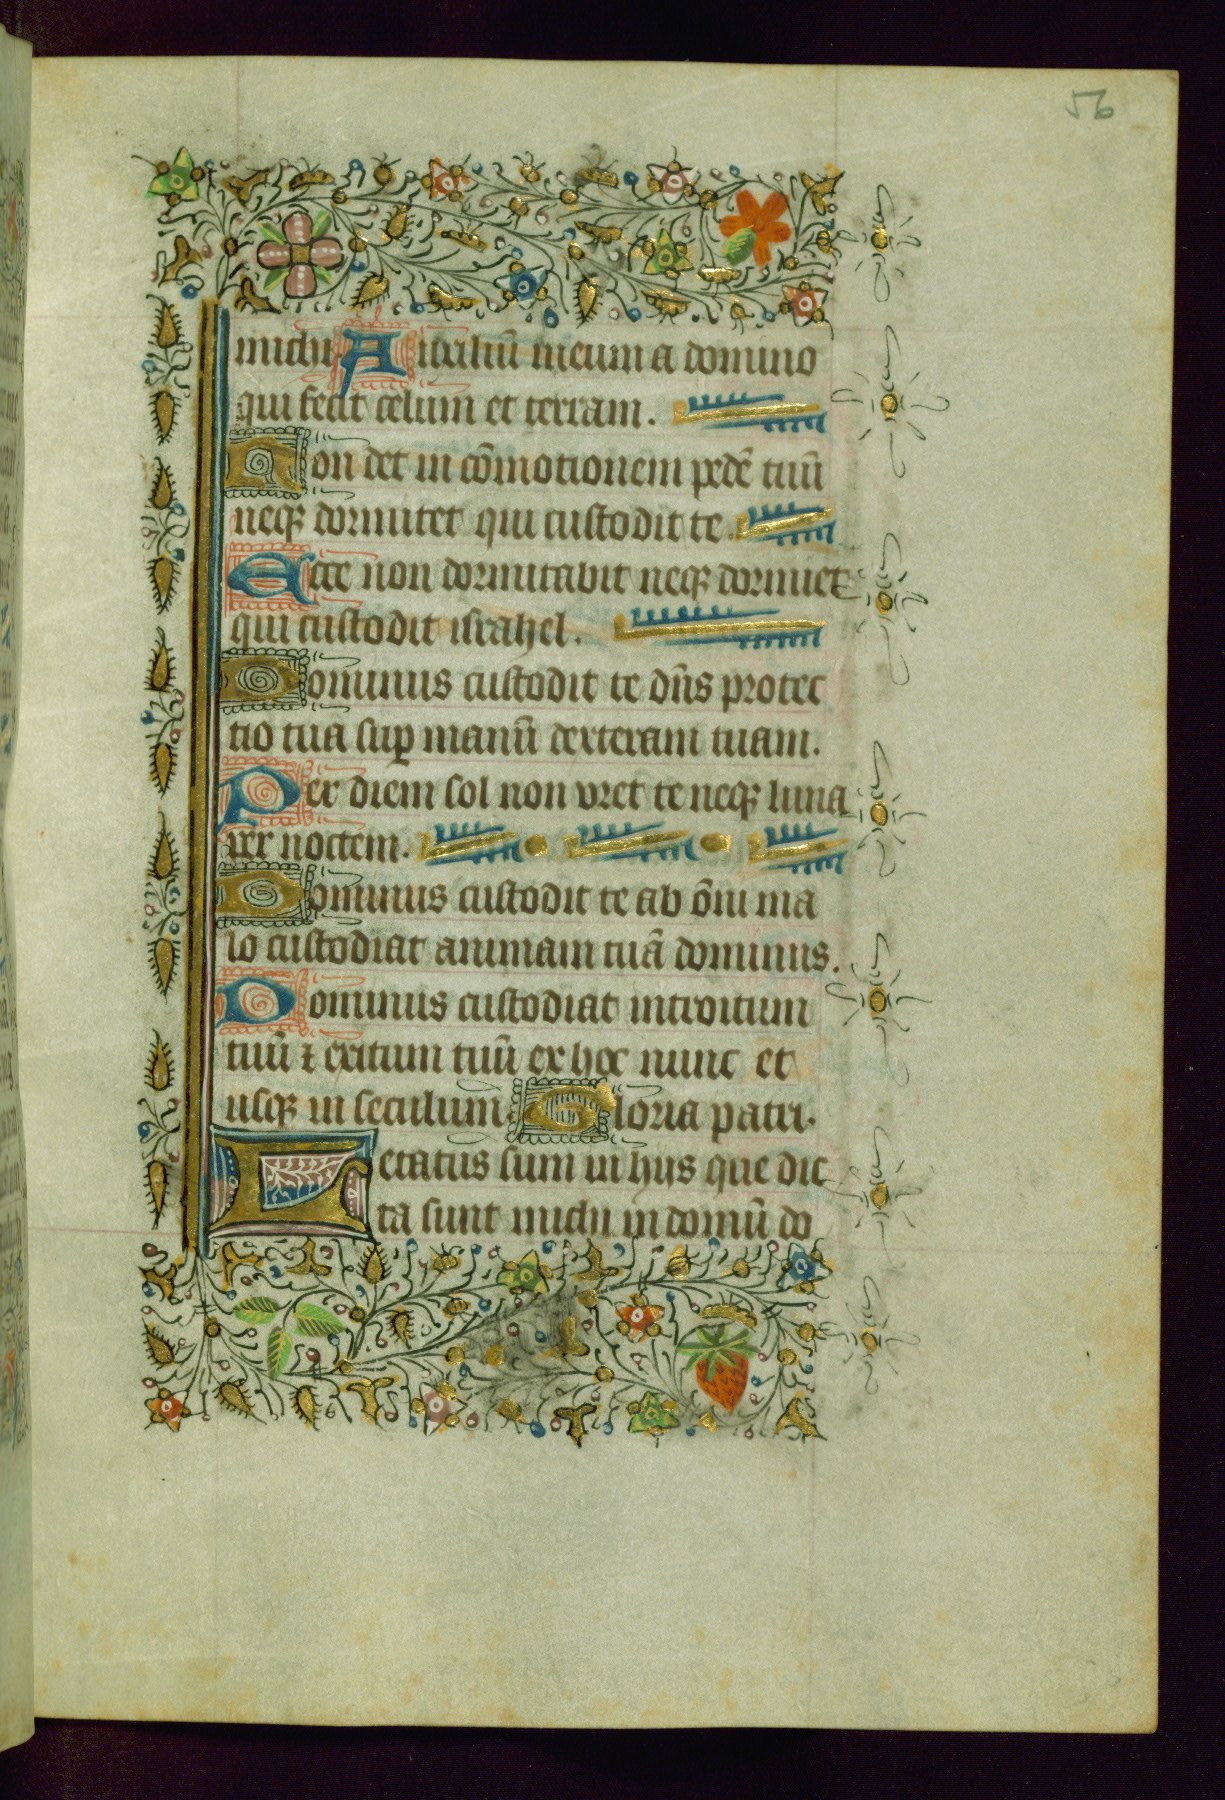 56
michi Auxiliū meum a domino
qui fecit celum et terram.
Non det in cōmotionem pedē tuū
neqꝫ dormitet qui custodit te.
Ecce non dormitabit neqꝫ dormiet
qui custodit israhel.
Dominus custodit te dn̄s protec
tio tua suꝑ manū dexteram tuam.
Per diem sol non vret te neqꝫ luna
per noctem.
Dominus custodit te ab ōni ma
lo custodiat animam tuā dominus.
Dominus custodiat introitum
tuū ⁊ exitum tuū ex hoc nunc et
usqꝫ in seculum. Gloria patri.
Letatus sum in hijs que dic
ta sunt michi in domū do